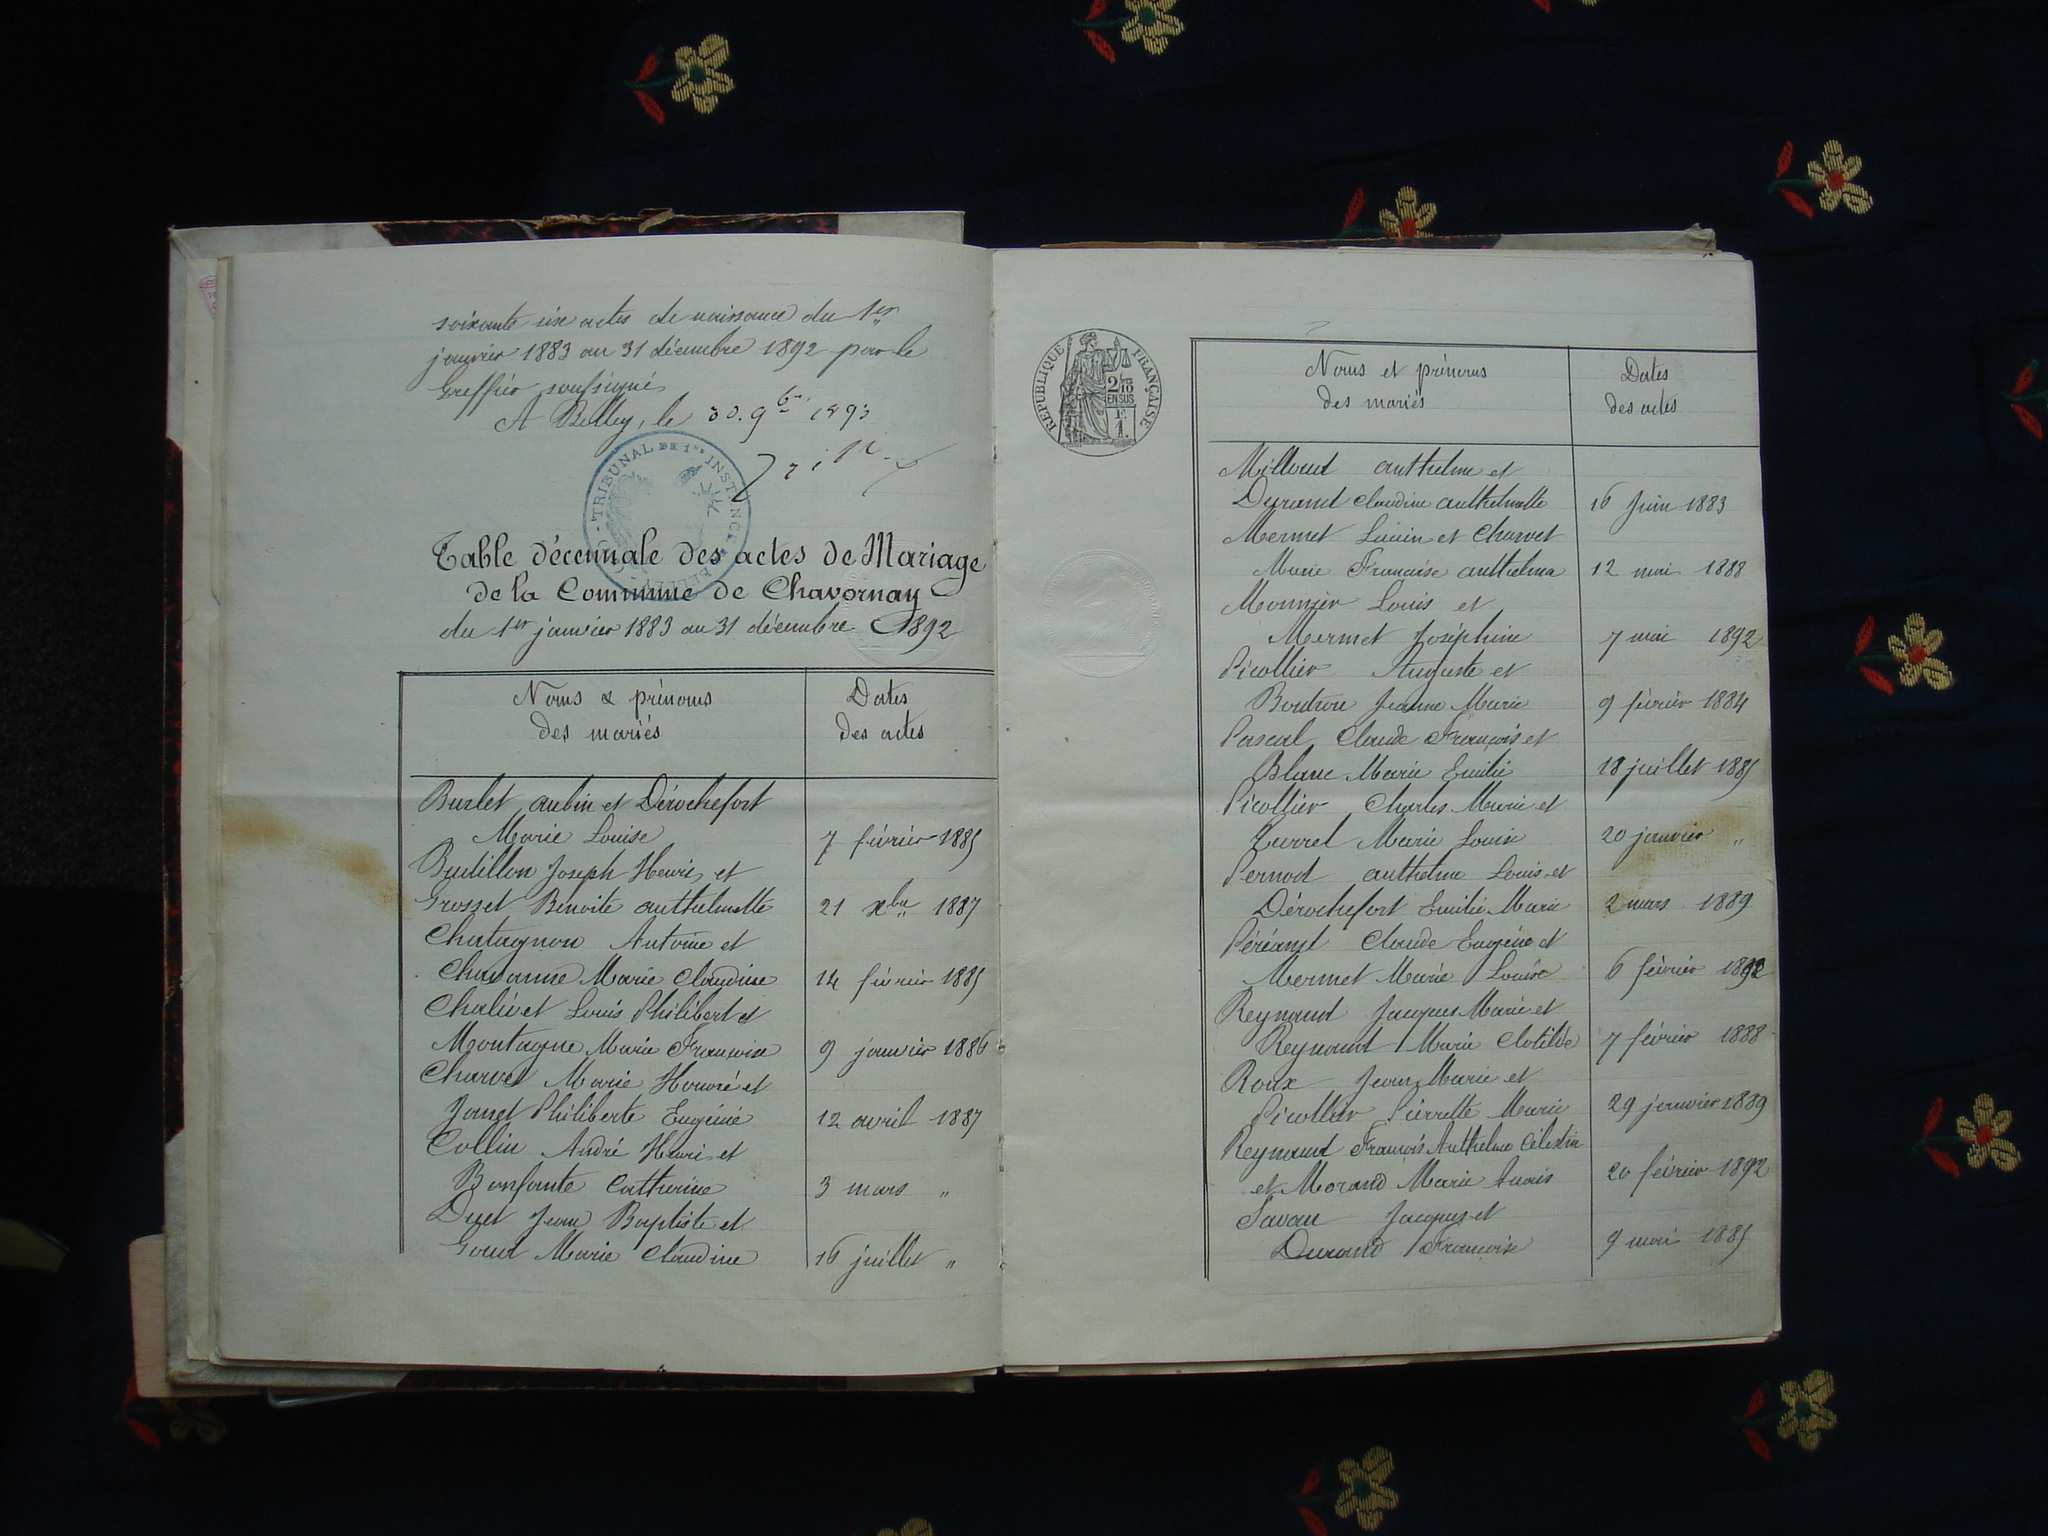 soixante six actes de naissance du 1er
janvier 1883 au 31 décembre 1892 par le
Greffier soussigné
A Belley, le 30. 9bre 1893
TRIBUNAL DE 1re INSTANCE
Table décennale des actes de Mariage
de la Commune de Chavornay
du 1er janvier 1883 au 31 décembre 1892
Noms & prénoms
des mariés
Dates
des actes
Burlet aubin et Dérochefort
Marie Louise 7 février 1885
Budillon Joseph Henri et
Grosset Benoite anthelmette 21 xbre 1887
Chatagnon Antoine et
Chavanne Marie Claudine 14 février 1885
Chalivet Louis Philibert et
Montagne Marie Françoise 9 janvier 1886
Charvet Marie Honoré et
Janet Philiberte Eugénie 12 avril 1887
Collin André Henri et
Bonfante Catherine 3 mars "
Duet Jean Baptiste et
Goud Marie Claudine 16 juillet "
RÉPUBLIQUE FRANÇAISE
2/10
EN SUS
F.
1.
Noms et prénoms
des mariés
Dates
des actes
Milloud anthelme et
Durand Claudine anthelmette 16 Juin 1883
Mermet Lucien et Charvet
Marie Françoise anthelma 12 mai 1888
Monnier Louis et
Mermet Joséphine 7 mai 1892
Picollier Auguste et
Boutron Jeanne Marie 9 février 1884
Pascal Claude François et
Blanc Marie Emilie 18 juillet 1885
Picollier Charles Marie et
Turrel Marie Louise 20 janvier "
Pernod anthelme Louis et
Dérochefort Emilie Marie 2 mars 1889
Claude Eugène et
Mermet Marie Louise 6 février 1892
Reynaud Jacques Marie et
Reynaud Marie Clotilde 7 février 1888
Roux Jean Marie et
Picollier Pierrette Marie 29 janvier 1889
Reynaud François Anthelme Célestin
et Morand Marie Anaïs 20 février 1892
Savau Jacques et
Durand Françoise 9 mai 1885